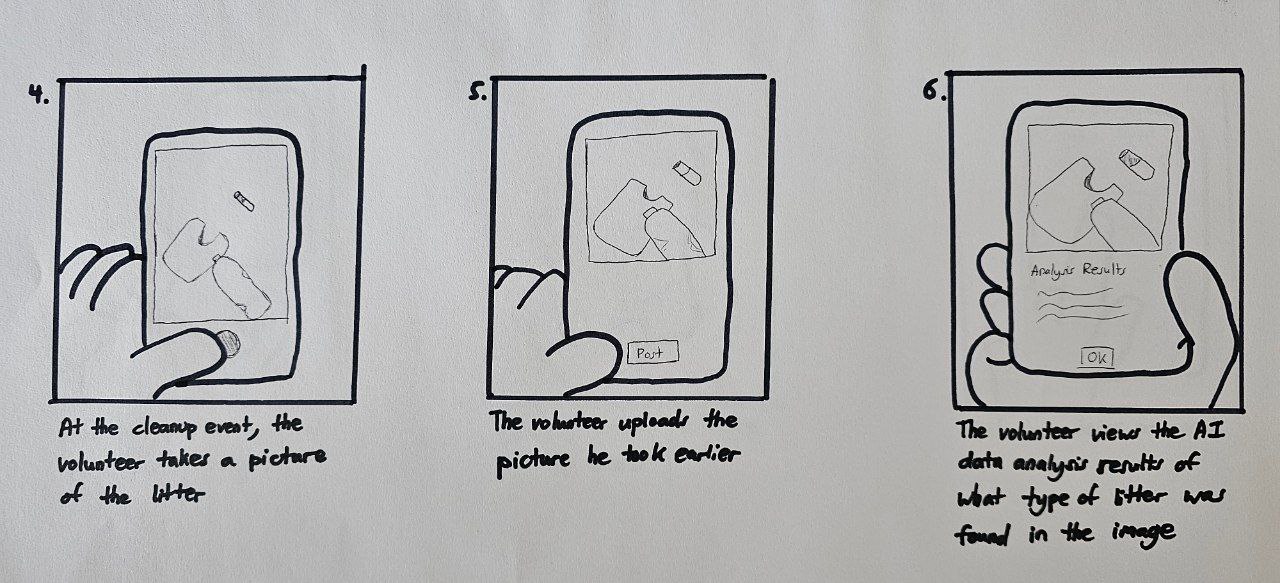 4.
At the cleanup event, the
volunteer takes a picture
of the litter
5.
Post
The volunteer uploads the
picture he took earlier
6.
Analysis Results
OK
The volunteer views the AI
data analysis results of
what type of litter was
found in the image